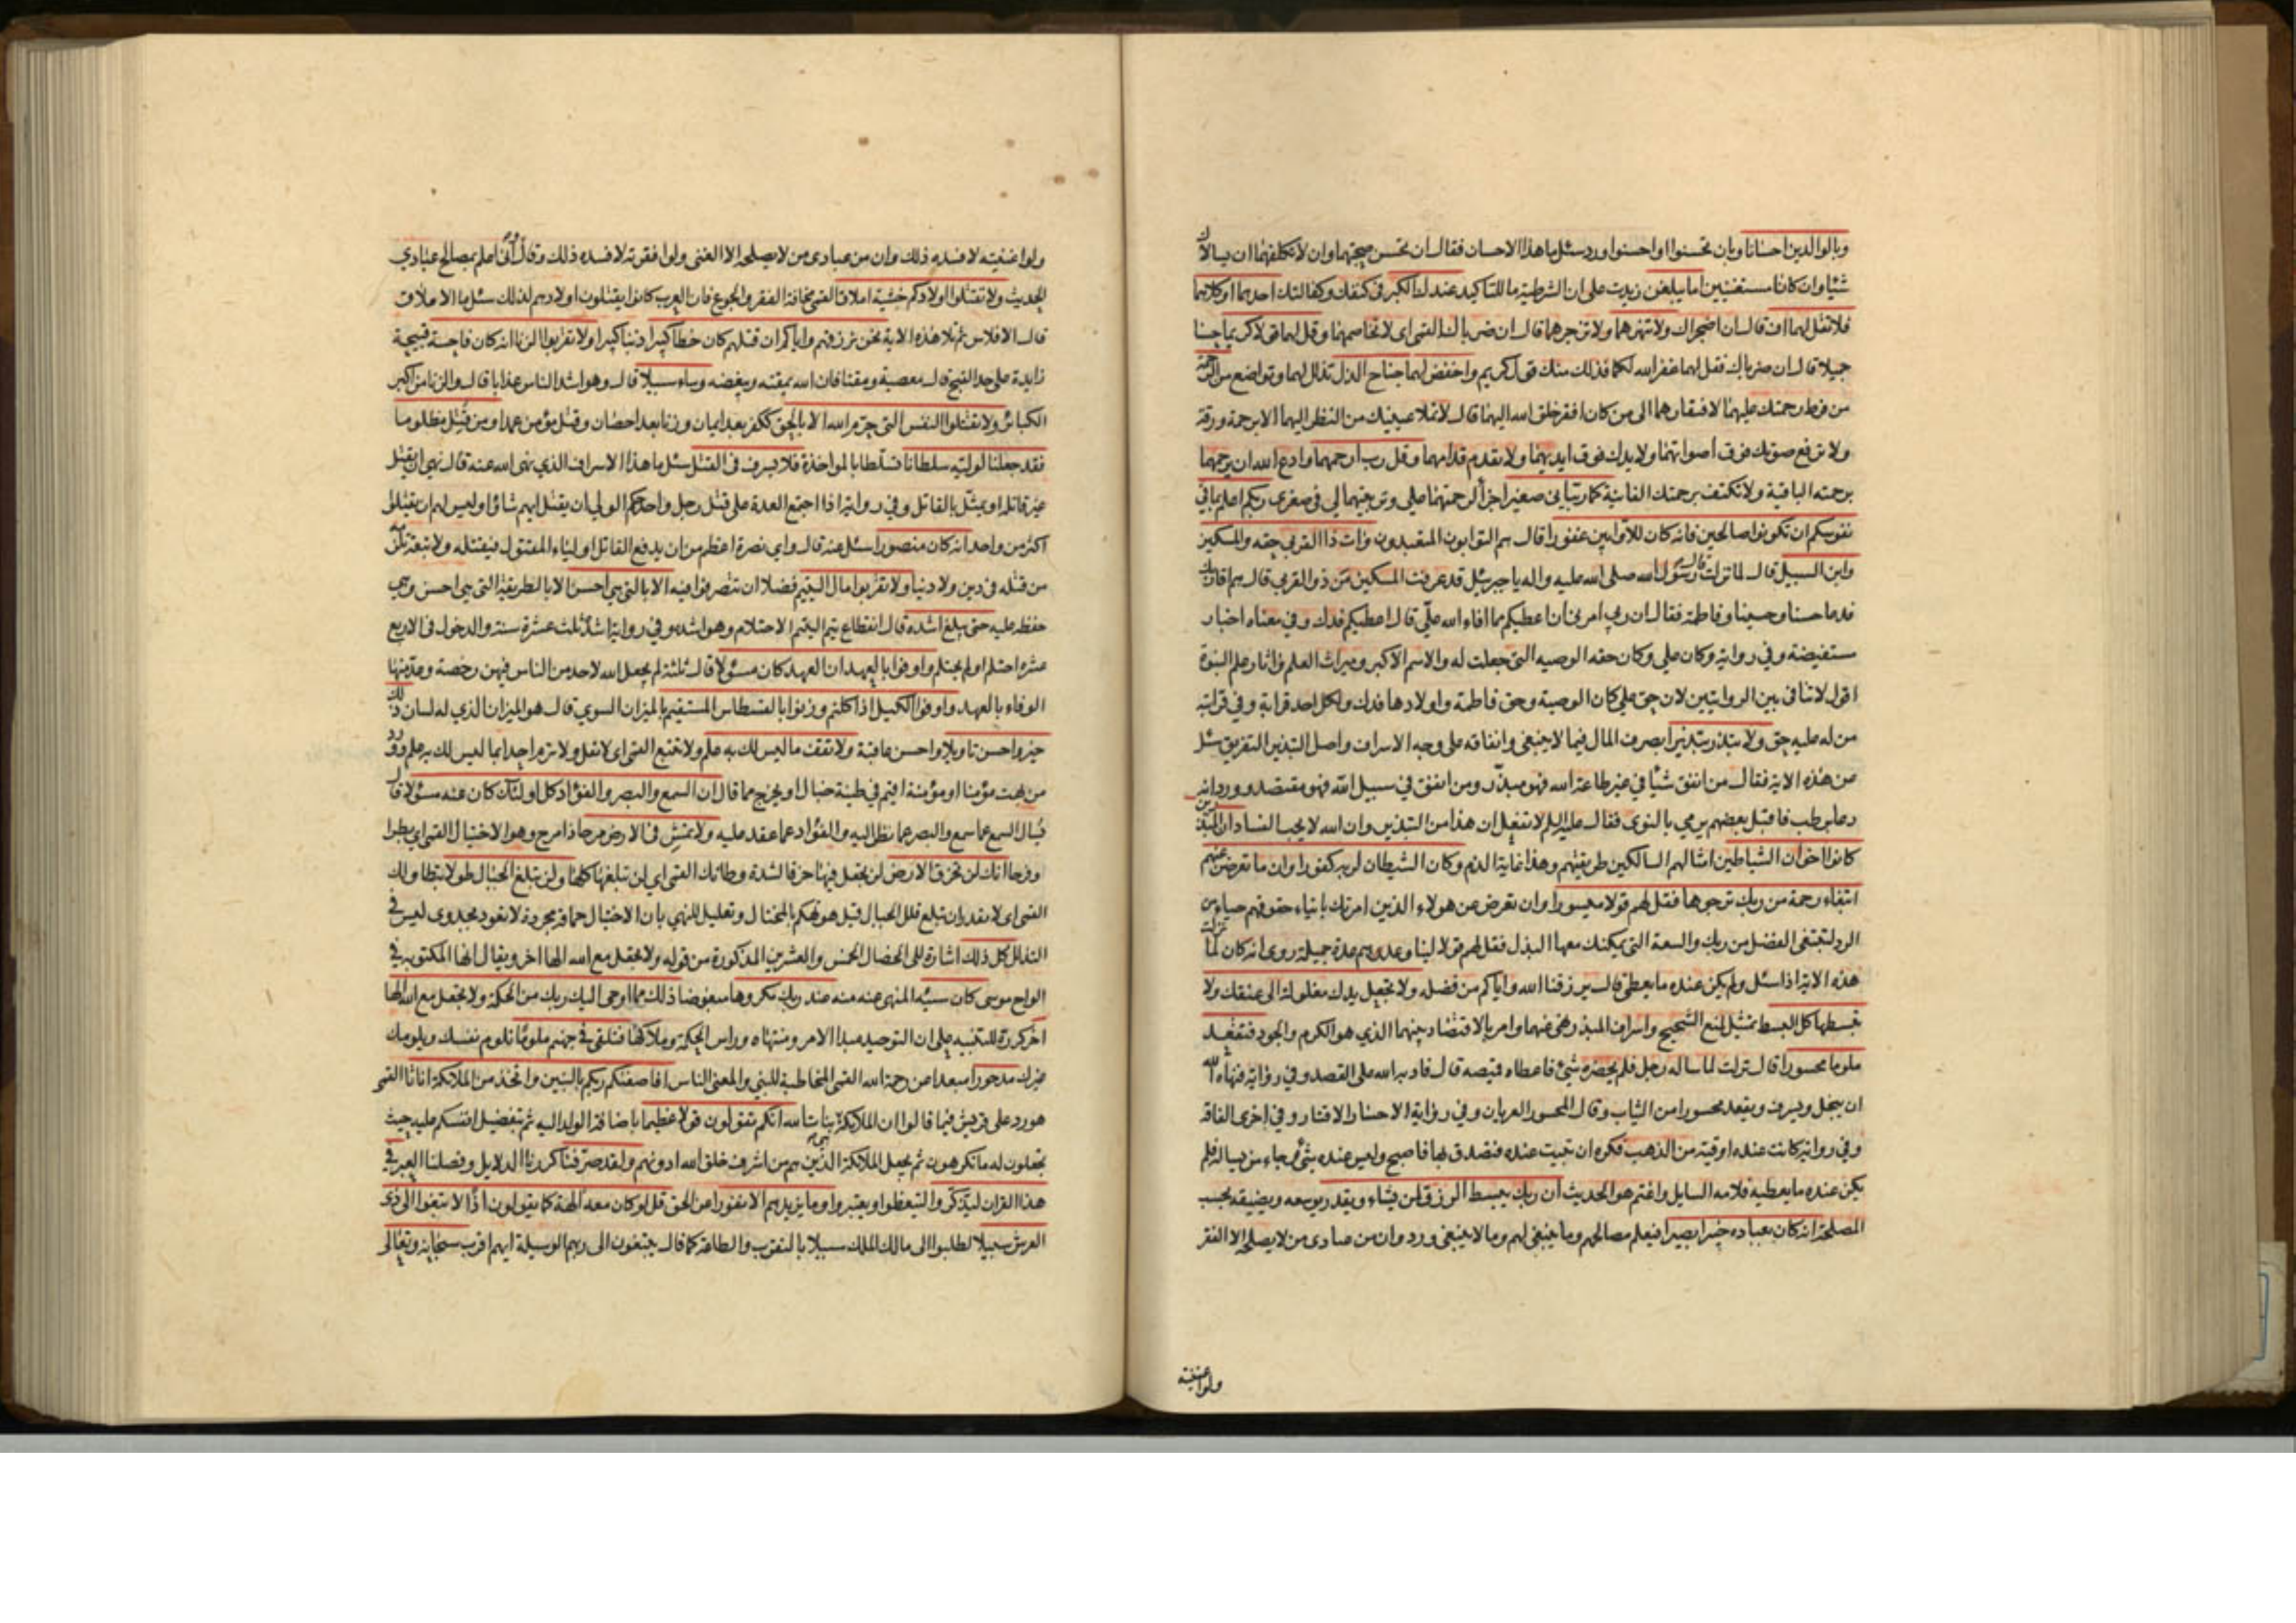 وبالوالدين احسانا وبان تحسنوا او احسنوا ورد سئل ما هذا الاحسان فقال ان تحسن صحبتهما وان لا تكلفهما ان يسالاك
شيئا وان كانا مستغنيين اما يبلغن زيدت على ان الشرطية ما للتاكيد عندك الكبر في كنفك وكفالتك احدهما او كلاهما
فلا تقل لهما اف قال ان اضجراك ولا تنهرهما ولا تزجرهما قال ان ضرباك القمي اي لا تخاصمهما وقل لهما قولا كريما حسنا
جميلا قال ان ضرباك فقل لهما غفر الله لكما فذلك منك قول كريم واخفض لهما جناح الذل تذلل لهما وتواضع من الرحمة
من فرط رحمتك عليهما لافتقارهما الى من كان افقر خلق الله اليهما قال لا تملا عينيك من النظر اليهما الا برحمة ورقة
ولا ترفع صوتك فوق اصواتهما ولا يدك فوق ايديهما ولا تقدم قدامهما وقل رب ارحمهما وادع الله ان يرحمهما
برحمته الباقية ولا تكتف برحمتك الفانية كما ربياني صغيرا جزاء لرحمتهما علي وتربيتهما لي في صغري ربكم اعلم بما في
نفوسكم ان تكونوا صالحين فانه كان للاوابين غفورا قال هم التوابون المتعبدون وات ذا القربى حقه والمسكين
وابن السبيل قال لما نزلت قال رسول الله صلى الله عليه واله يا جبرئيل قد عرفت المسكين من ذو القربى قال هم اقاربك
فدعا حسنا وحسينا وفاطمة فقال ان ربي امرني ان اعطيكم مما افاء الله علي قال اعطيكم فدك وفي معناه اخبار
مستفيضة وفي رواية وكان علي وكان حقه الوصيه التي جعلت له والاسم الاكبر وميراث العلم واثار علم النبوة
اقول لا تنافي بين الروايتين لان حق علي كان الوصية وحق فاطمة واولادها فدك ولكل احد قرابة وفي قرابته
من له عليه حق ولا تبذر تبذيرا بصرف المال فيما لا ينبغي وانفاقه على وجه الاسراف واصل التبذير التفريق سئل
عن هذه الاية فقال من انفق شيئا في غير طاعة الله فهو مبذر ومن انفق في سبيل الله فهو مقتصد وورد انه
دعا برطب فاقبل بعضهم يرمي بالنوى فقال عليه السلم لا تفعل ان هذا من التبذير وان الله لا يحب الفساد ان المبذرين
كانوا اخوان الشياطين امثالهم السالكين طريقتهم وهذا غاية الذم وكان الشيطان لربه كفورا وان ما تعرض عنهم
ابتغاء رحمة من ربك ترجوها فقل لهم قولا ميسورا وان تعرض عن هولاء الذين امرتك بايتاء حقوقهم حياء من
الرد لتبتغي الفضل من ربك والسعة التي يمكنك معها البذل فقل لهم قولا لينا وعدهم عدة جميلة روي انه كان لما نزلت
هذه الاية اذا سئل ولم يكن عنده ما يعطي قال يرزقنا الله واياكم من فضله ولا تجعل يدك مغلولة الى عنقك ولا
تبسطها كل البسط تمثيل لمنع الشحيح واسراف المبذر نهى عنهما وامر بالاقتصاد بينهما الذي هو الكرم والجود فتقعد
ملوما محسورا قال نزلت لما ساله رجل فلم يحضره شيئ فاعطاه قميصه قال فادبه الله على القصد وفي رواية فنهاه الله
ان يبخل ويسرف ويقعد محسورا من الثياب وقال المحسور العريان وفي رواية الاحسار الاقتار وفي اخرى الفاقة
وفي رواية كانت عنده اوقية من الذهب فكره ان تبيت عنده فتصدق بها فاصبح وليس عنده شئ فجاء من يساله فلم
يكن عنده ما يعطيه فلامه السايل واغتم هو الحديث ان ربك يبسط الرزق لمن يشاء ويقدر يوسعه ويضيقه بحسب
المصلحة انه كان بعباده خبيرا بصيرا فيعلم مصالحهم وما ينبغي لهم وما لا ينبغي ورد وان من عبادي من لا يصلحه الا الفقر
ولو اغنيته
ولو اغنيته لافسده ذلك وان من عبادي من لا يصلحه الا الغنى ولو افقرته لافسده ذلك وقال واني اعلم بمصالح عبادي
الحديث ولا تقتلوا اولادكم خشية املاق القمي مخافة الفقر والجوع فان العرب كانوا يقتلون اولادهم لذلك سئل ما الاملاق
قال الافلاس ثم تلا هذه الاية نحن نرزقهم واياكم ان قتلهم كان خطأ كبيرا ذنبا كبيرا ولا تقربوا الزنا انه كان فاحشة قبيحة
زايدة على حد القبح قال معصية ومقتا فان الله يمقته ويبغضه وساء سبيلا قال وهو اشد الناس عذابا قال والزنا من اكبر
الكبائر ولا تقتلوا النفس التي حرم الله الا بالحق ككفر بعد ايمان وزنا بعد احصان وقتل مؤمن عمدا ومن قتل مظلوما
فقد جعلنا لوليه سلطانا تسلطا بالمواخذة فلا يسرف في القتل سئل ما هذا الاسراف الذي نهى الله عنه قال نهى ان يقتل
غير قاتله او يمثل بالقاتل وفي رواية اذا اجتمع العدة على قتل رجل واحد حكم الوالي ان يقتل ايهم شاؤا وليس لهم ان يقتلوا
اكثر من واحد انه كان منصورا سئل عنه قال واي نصرة اعظم من ان يدفع القاتل اولياء المقتول فيقتله ولا تبعة تلزمه
من قتله في دين ولا دنيا ولا تقربوا مال اليتيم فضلا ان تتصرفوا فيه الا بالتي هي احسن الا بالطريقة التي هي احسن وهي
حفظه عليه حتى يبلغ اشده قال انقطاع يتم اليتيم الاحتلام وهو اشده وفي رواية اشده ثلث عشرة سنة والدخول في الاربع
عشره احتلم او لم يحتلم واوفوا بالعهد ان العهد كان مسئولا قال ثلثة لم يجعل الله لاحد من الناس فيهن رخصة وعد منها
الوفاء بالعهد واوفوا الكيل اذا كلتم وزنوا بالقسطاس المستقيم بالميزان السوي قال هو الميزان الذي له لسان ذلك
خير واحسن تاويلا واحسن عاقبة ولا تقف ما ليس لك به علم ولا تتبع القمي اي لا تقل ولا ترم احدا بما ليس لك به علم وورد
من بهت مؤمنا او مؤمنة اقيم في طينة خبال او يخرج مما قال ان السمع والبصر والفؤاد كل اولئك كان عنه مسئولا قال
يسال السمع عما سمع والبصر عما نظر اليه والفؤاد عما عقد عليه ولا تمش في الارض مرحا ذا مرح وهو الاختيال القمي اي بطرا
وفرحا انك لن تخرق الارض لن تجعل فيها خرقا لشدة وطائك القمي اي لن تبلغها كلها ولن تبلغ الجبال طولا بتطاولك
القمي اي لا تقدر ان تبلغ قلل الجبال قيل هو تهكم بالمختال وتعليل للنهي بان الاختيال حماقة مجردة لا تعود بجدوى ليس في
التذلل كل ذلك اشارة الى الخصال الخمس والعشرين المذكورة من قوله ولا تجعل مع الله الها اخر ويقال انها المكتوبة في
الواح موسى كان سيئه المنهي عنه منه عند ربك مكروها مبغوضا ذلك مما اوحى اليك ربك من الحكمة ولا تجعل مع الله الها
اخر كرره للتنبيه على ان التوحيد مبدا الامر ومنتهاه وراس الحكمة وملاكها فتلقى في جهنم ملوما تلوم نفسك ويلومك
غيرك مدحورا مبعدا من رحمة الله القمي المخاطبة للنبي والمعنى الناس افاصفيكم ربكم بالبنين واتخذ من الملائكة اناثا القمي
هو رد على قريش فيما قالوا ان الملائكة بنات الله انكم لتقولون قولا عظيما باضافة الولد اليه ثم بتفضيل انفسكم عليه حيث
تجعلون له ما تكرهون ثم بجعل الملائكة الذين هم من اشرف خلق الله ادونهم ولقد صرفنا كررنا الدلايل وفصلنا العبر في
هذا القران ليذكروا ليتعظوا ويعتبروا وما يزيدهم الا نفورا عن الحق قل لو كان معه الهة كما يقولون اذا لابتغوا الى ذي
العرش سبيلا لطلبوا الى مالك الملك سبيلا بالتقرب والطاعة كما قال يبتغون الى ربهم الوسيلة ايهم اقرب سبحانه وتعالى